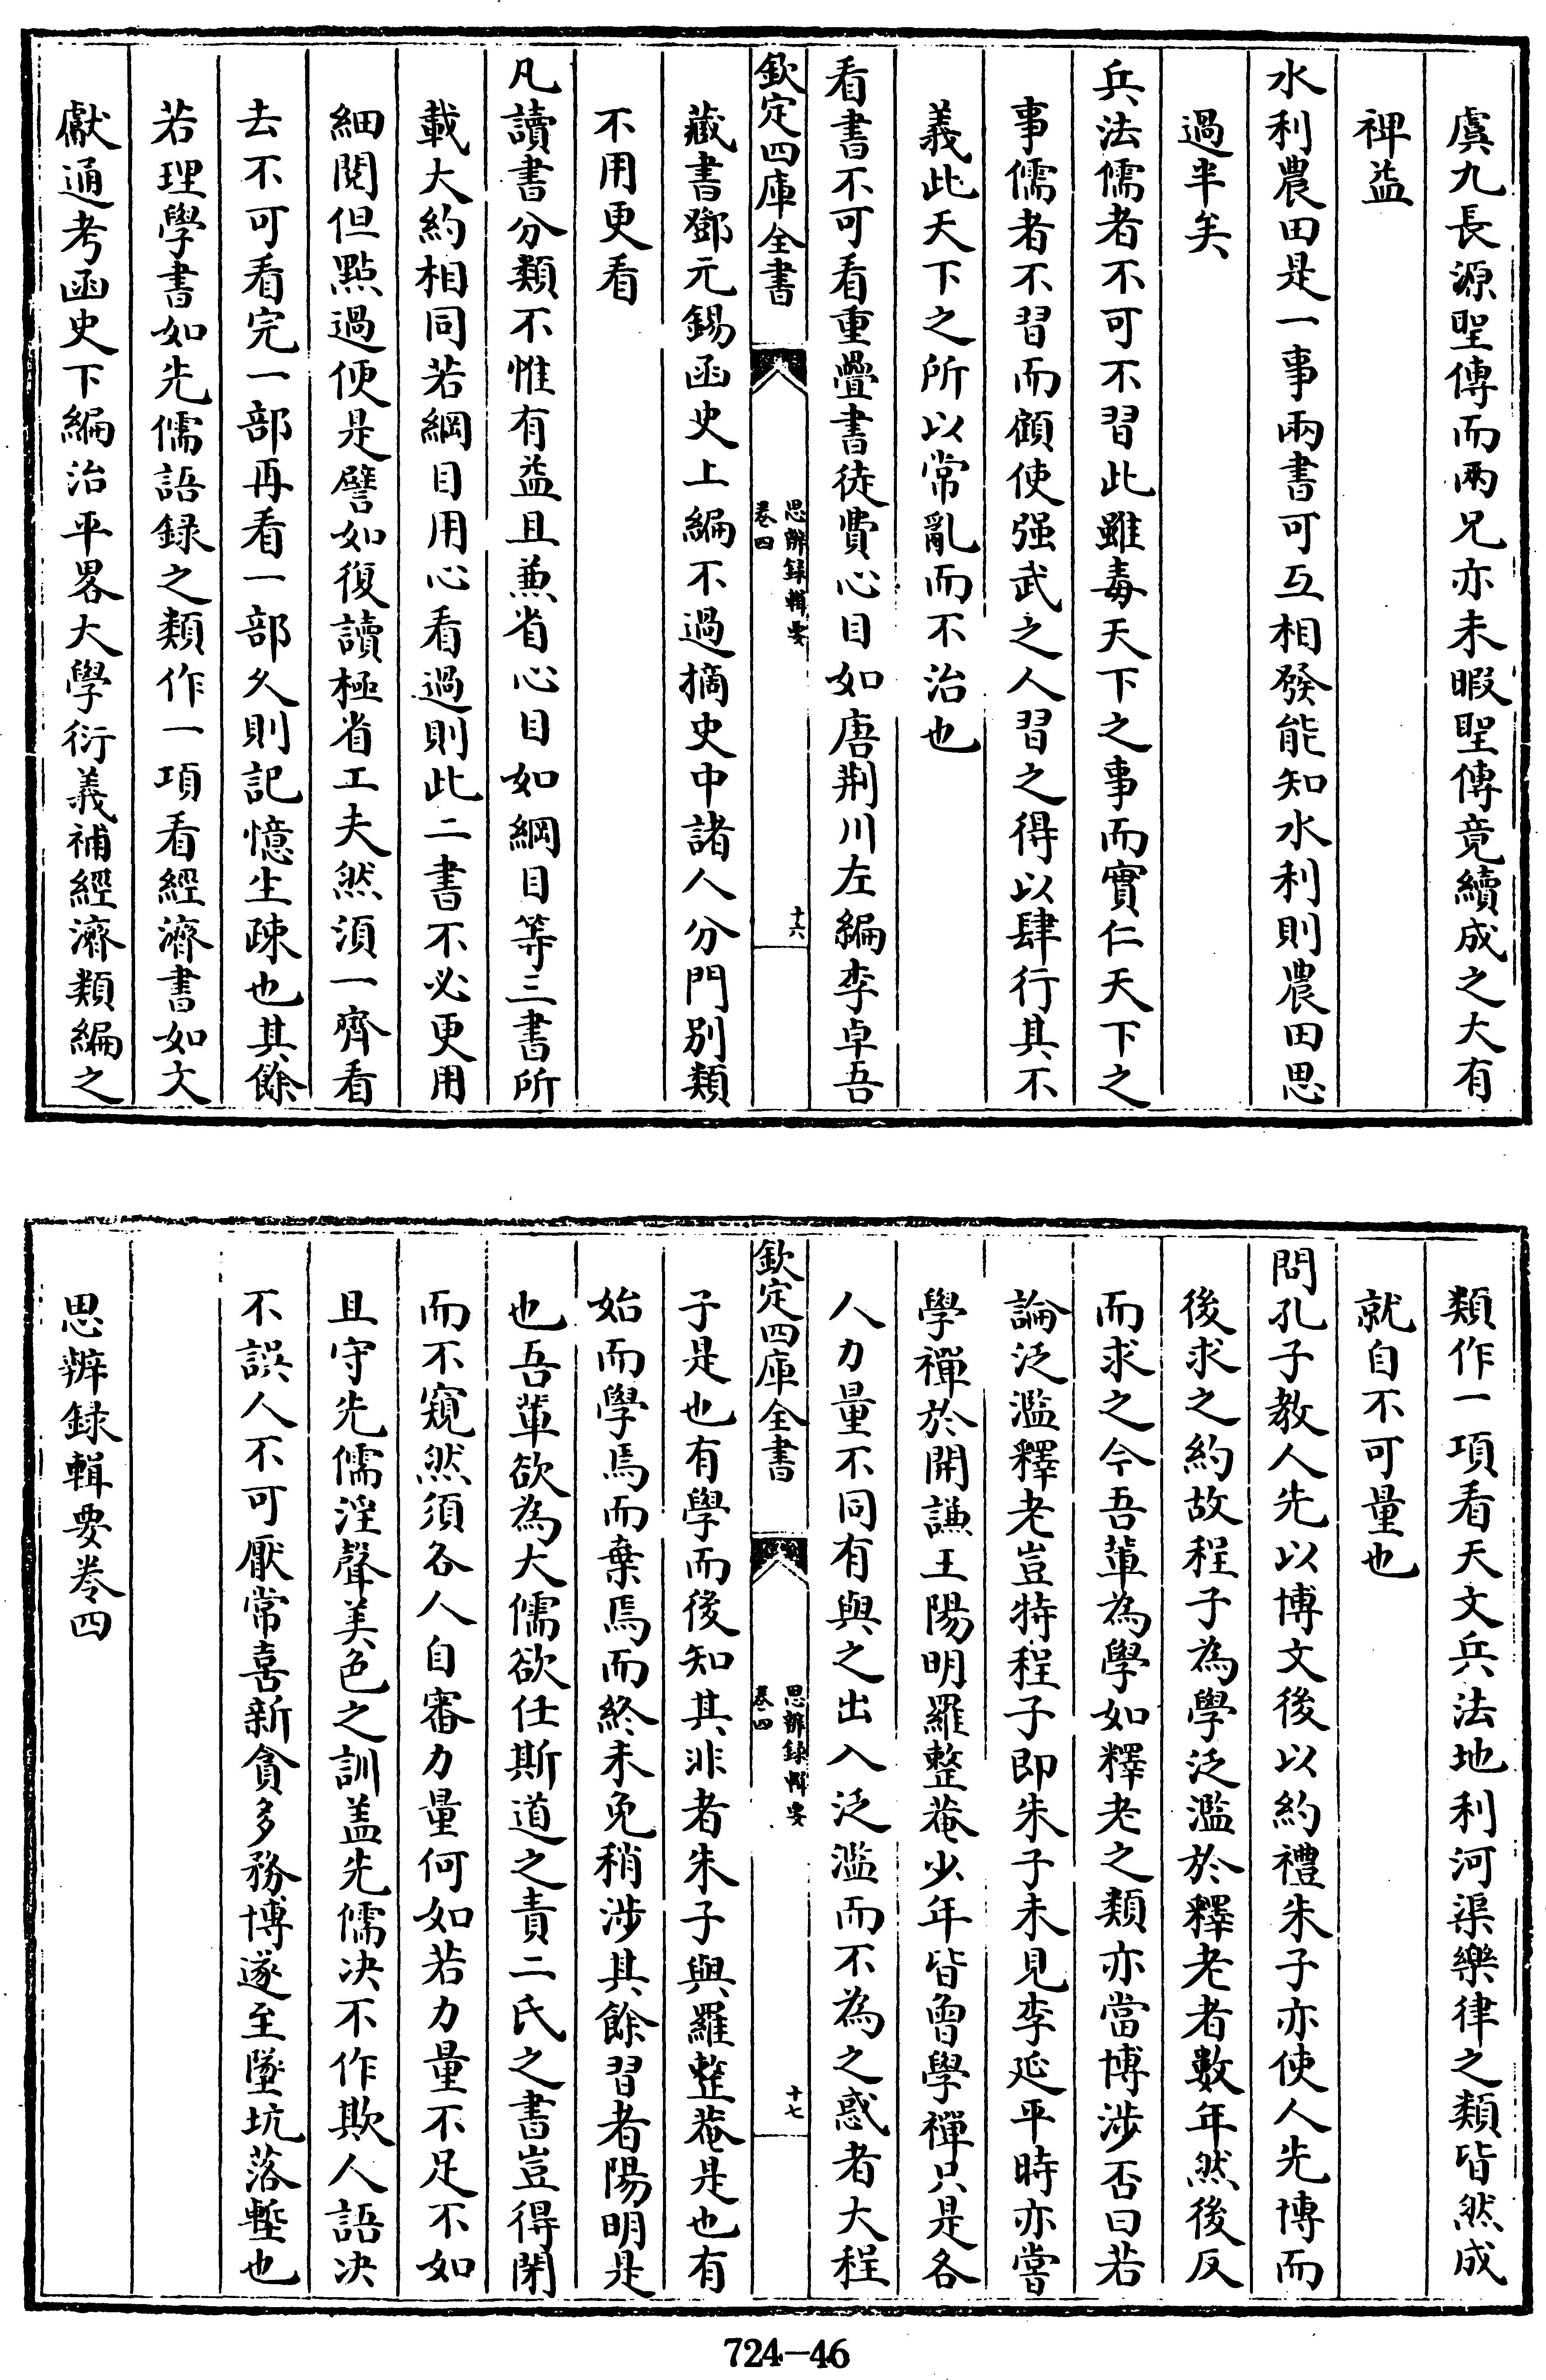 虞九長源聖傳而兩兄亦未暇聖傳竟續成之大有
裨益
水利農田是一事兩書可互相發能知水利則農田思
過半矣
兵法儒者不可不習此雖毒天下之事而實仁天下之
事儒者不習而顧使强武之人習之得以肆行其不
義此天下之所以常亂而不治也
看書不可看重疊書徒費心目如唐荆川左編李卓吾
欽定四庫全書
思辨録輯要
卷四
十六
藏書鄧元錫函史上編不過摘史中諸人分門别類
不用更看
凡讀書分類不惟有益且兼省心目如綱目等三書所
載大約相同若綱目用心看過則此二書不必更用
細閲但點過便是譬如復讀極省工夫然須一齊看
去不可看完一部再看一部久則記憶生疎也其餘
若理學書如先儒語録之類作一項看經濟書如文
獻通考函史下編治平畧大學衍義補經濟類編之
類作一項看天文兵法地利河渠樂律之類皆然成
就自不可量也
問孔子教人先以博文後以約禮朱子亦使人先博而
後求之約故程子為學泛濫於釋老者數年然後反
而求之今吾軰為學如釋老之類亦當博涉否曰若
論泛濫釋老豈特程子即朱子未見李延平時亦嘗
學禪於開謙王陽明羅整菴少年皆曾學禪只是各
人力量不同有與之出入泛濫而不為之惑者大程
欽定四庫全書
思辨録輯要
卷四
十七
子是也有學而後知其非者朱子與羅整菴是也有
始而學焉而棄焉而終未免稍涉其餘習者陽明是
也吾軰欲為大儒欲任斯道之責二氏之書豈得閉
而不窺然須各人自審力量何如若力量不足不如
且守先儒淫聲美色之訓盖先儒决不作欺人語决
不誤人不可厭常喜新貪多務博遂至墜坑落塹也
思辨録輯要卷四
724-46